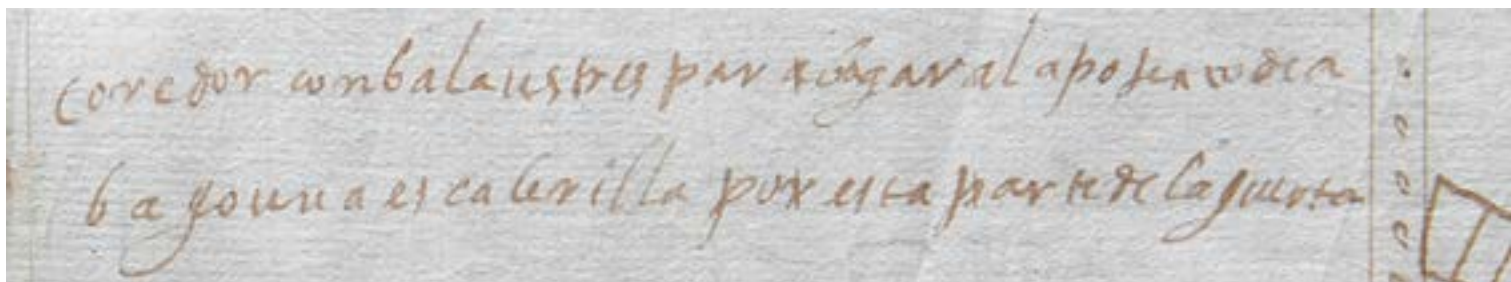 coredor conbalaustres par al aposento de a
bajo una escalerilla por esta parte de la guerta